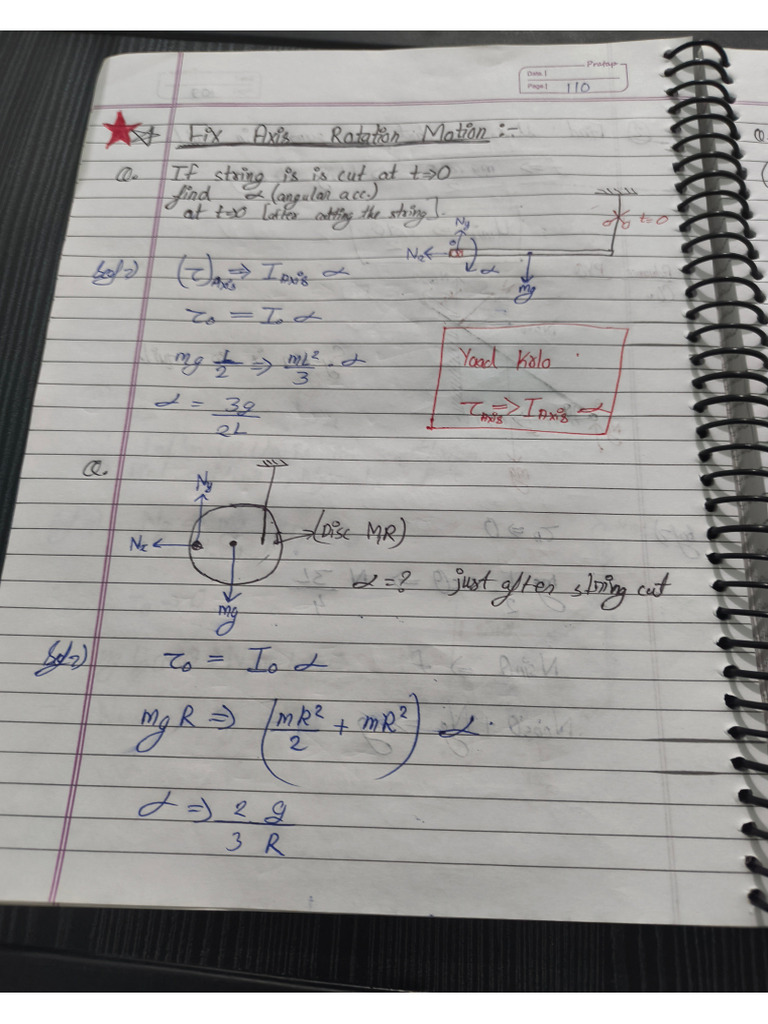 Protap
Date |
Page | 110
Fix Axis Rotation Motion :-
Q. If string is is cut at t⇒0
find α (angular acc.)
at t=0 [after cutting the string].
t=0
Ny
Nx
α
mg
Sol²)
(τ)Axis ⇒ IAxis α
τ₀ = I₀ α
mg L/2 ⇒ mL²/3 · α
α = 3g/2L
Yaad Krlo
τAxis ⇒ IAxis α
Q.
Ny
Nx
(Disc MR)
mg
α = ? just after string cut
Sol²)
τ₀ = I₀ α
mg R ⇒ (mR²/2 + mR²) α.
α ⇒ 2 g/3 R